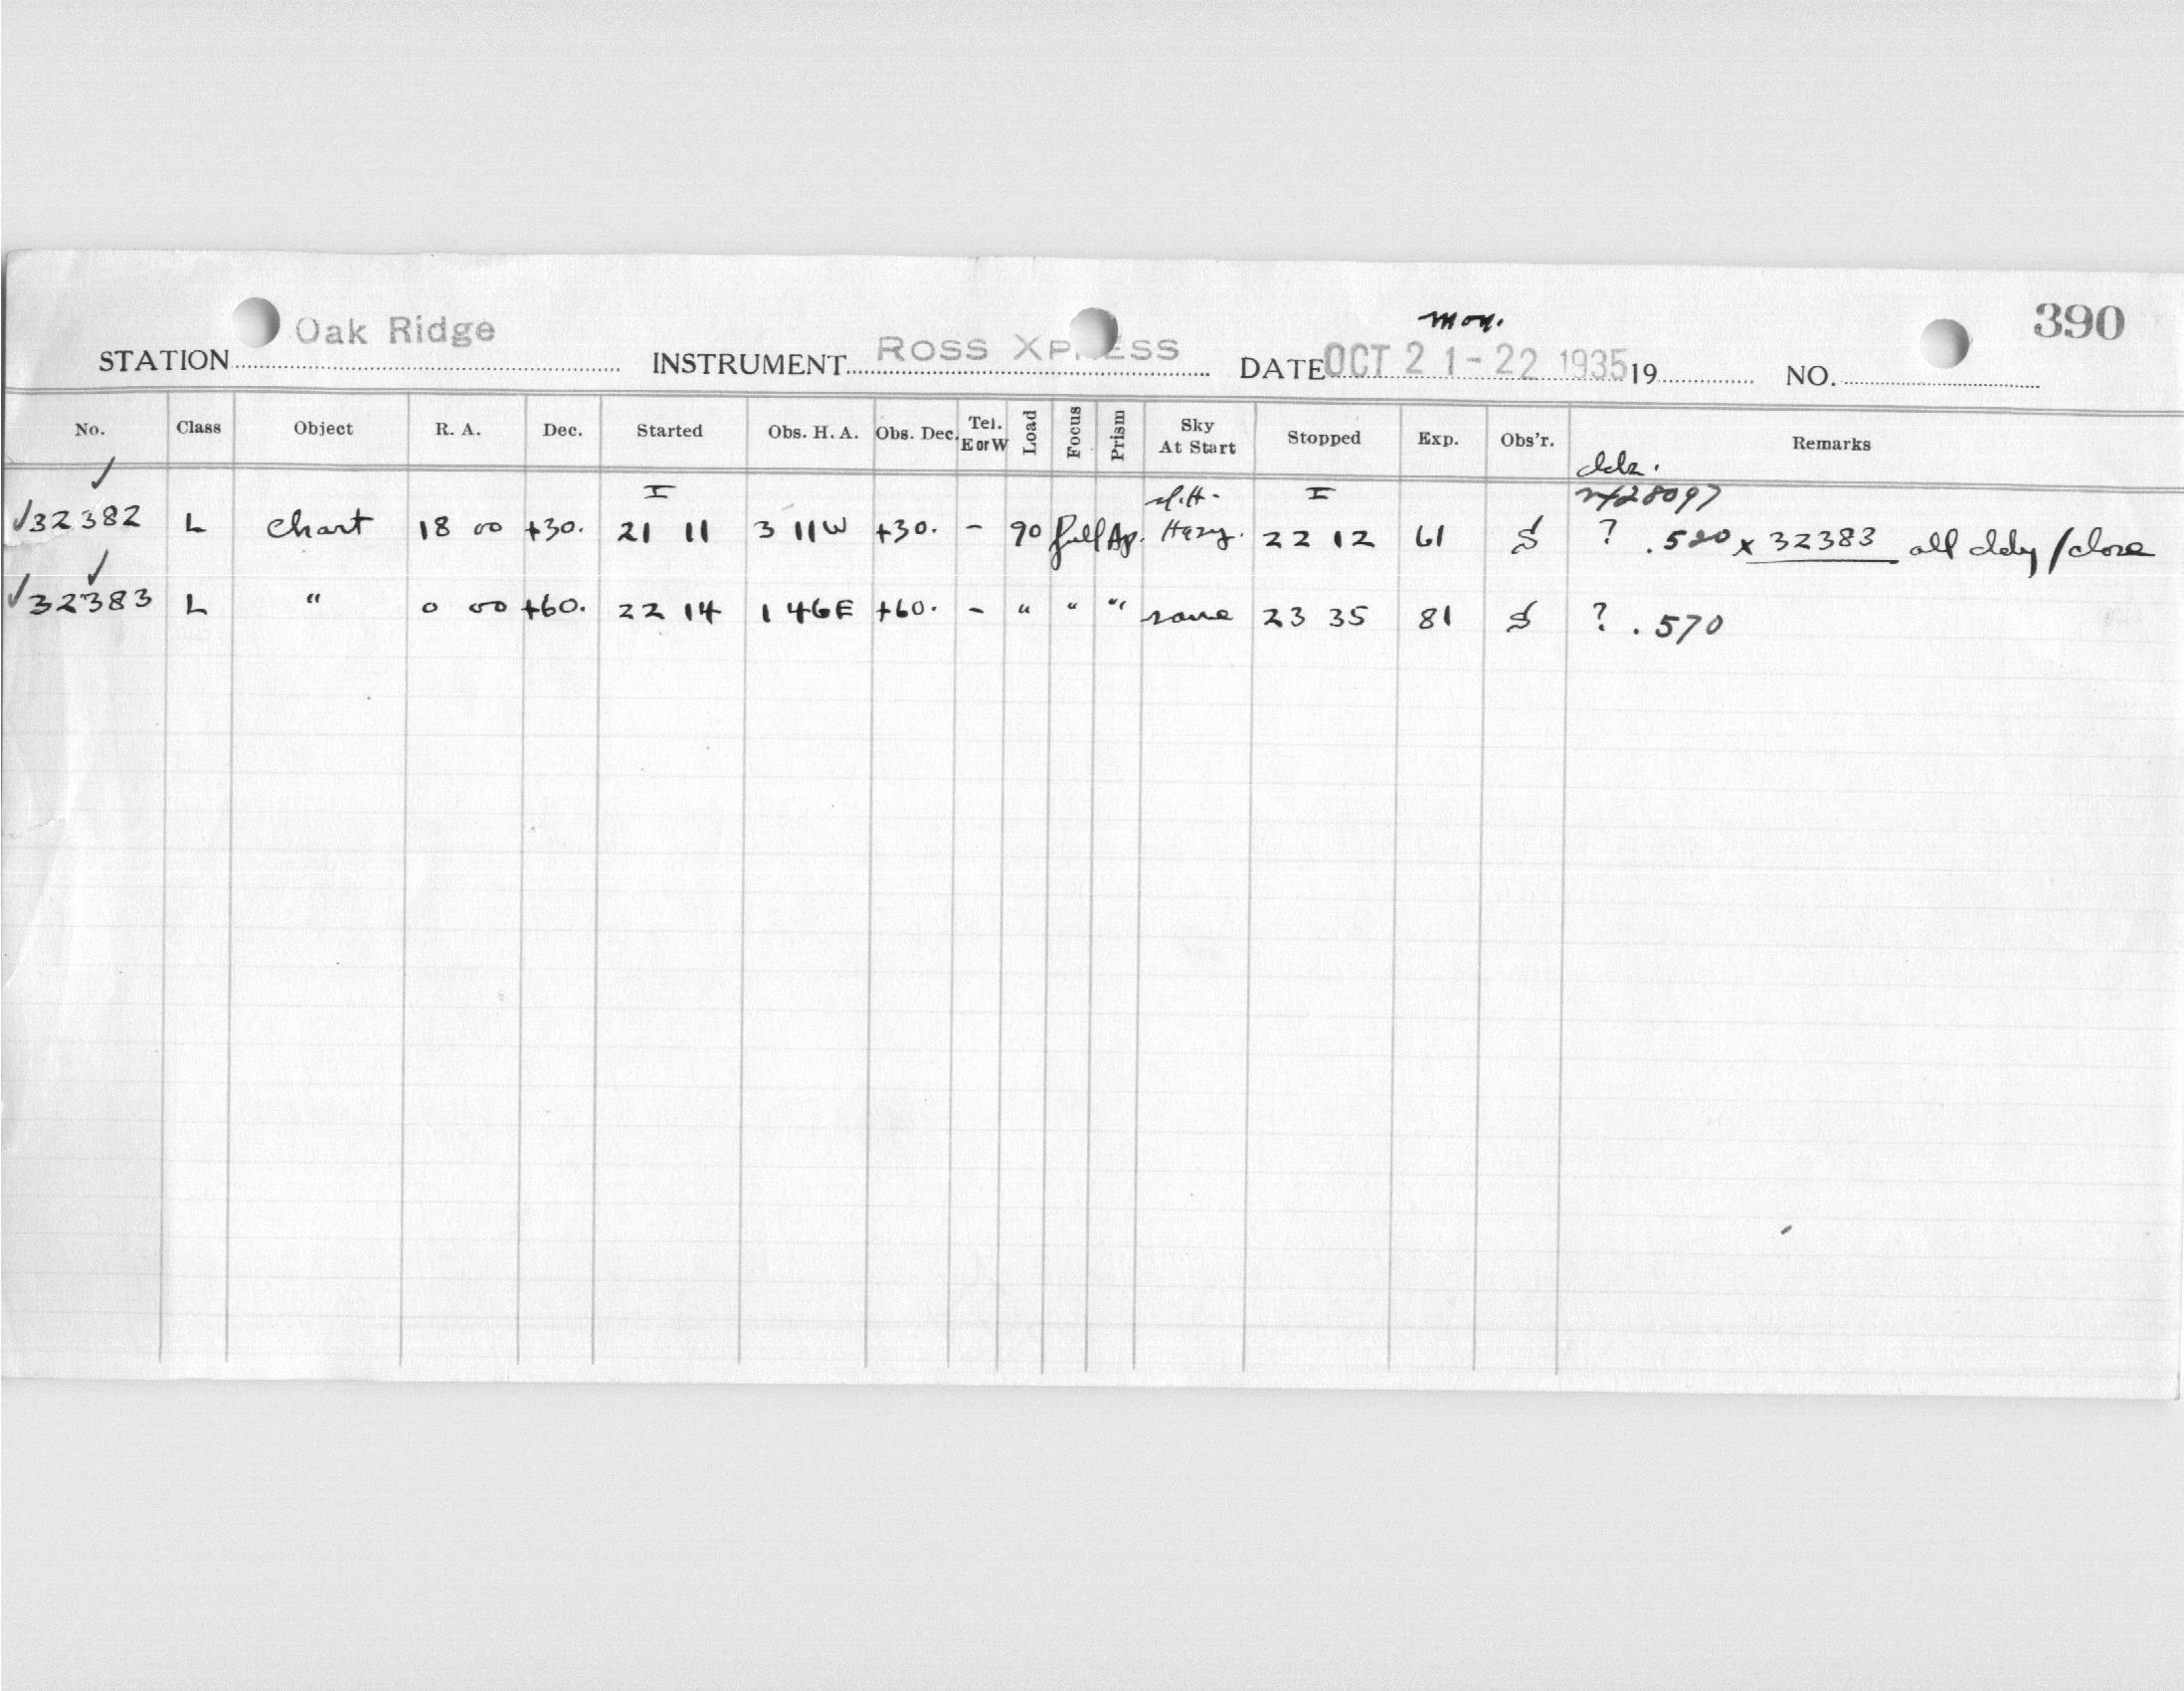 mon.
390
STATION Oak Ridge INSTRUMENT ROSS XPRESS DATE OCT 21-22 1935 19 NO.
No. Class Object R. A. Dec. Started Obs. H. A. Obs. Dec. Tel. E or W Load Focus Prism Sky At Start Stopped Exp. Obs'r. Remarks
I I 28097
✓32382 L Chart 18 00 +30. 21 11 3 11W +30. - 90 full Ap. Hazy. 22 12 61 S ? .580 x 32383 all /close
✓32383 L " 0 00 +60. 22 14 1 46E +60. - " " " same 23 35 81 S ? .570